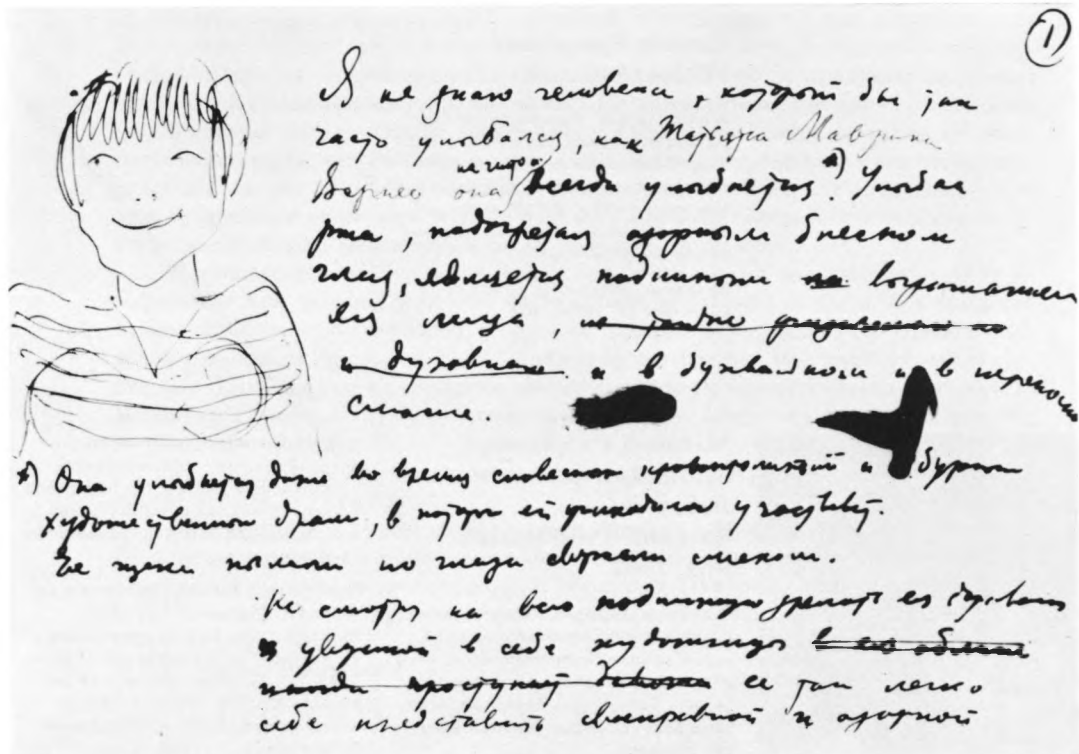 1
Я не знаю человека, который бы так
часто улыбался, как Татьяна Маврина
Вернее она всегда улыбается. *) Улыбка
рта, подогретая озорным блеском
глаз, является подлинным выражением
её лица,
и духовным и в буквальном и в переносном
смысле.
*) Она улыбается даже во время словесных кровопролитий и бурных
художественных драк, в которых ей приходилось участвовать.
Ее щеки пылали но глаза сверкали смехом.
Не смотря на всю подлинную зрелость ее
в себе художницы в его облике
иногда проступает ее так легко
себе представить своенравной и озорной